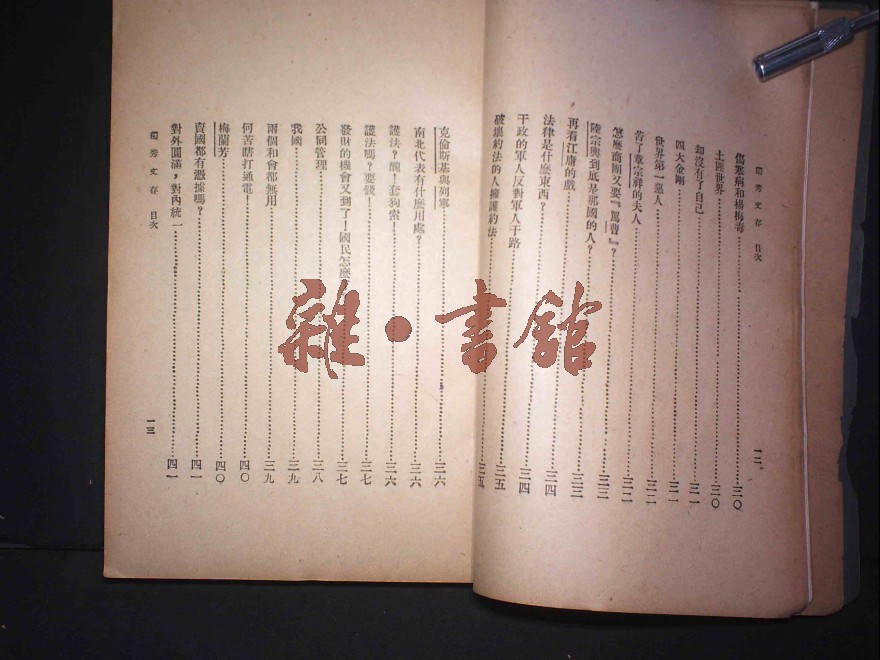 獨秀文存 目次 一二
傷寒病和楊梅毒 三〇
土匪世界 三〇
却沒有了自己 三一
四大金剛 三一
世界第一惡人 三二
苦了章宗祥的夫人 三二
怎麼商團又要『罵曹』？ 三三
陸宗輿到底是那國的人？ 三三
再看江庸的戲 三三
法律是什麼東西？ 三四
干政的軍人反對軍人干路 三四
破壞約法的人擁護約法 三五
三五
克倫斯基與列寧 三六
南北代表有什麼用處？ 三六
護法？醜！套狗索！ 三六
護法嗎？要錢！ 三七
發財的機會又到了！國民怎麼 三七
公同管理 三八
我國 三九
兩個和會都無用 三九
何苦瞎打通電！ 四〇
梅蘭芳 四〇
賣國都有憑據嗎？ 四一
對外圓滿，對內統一 四一
獨秀文存 目次 一三
雜·書館